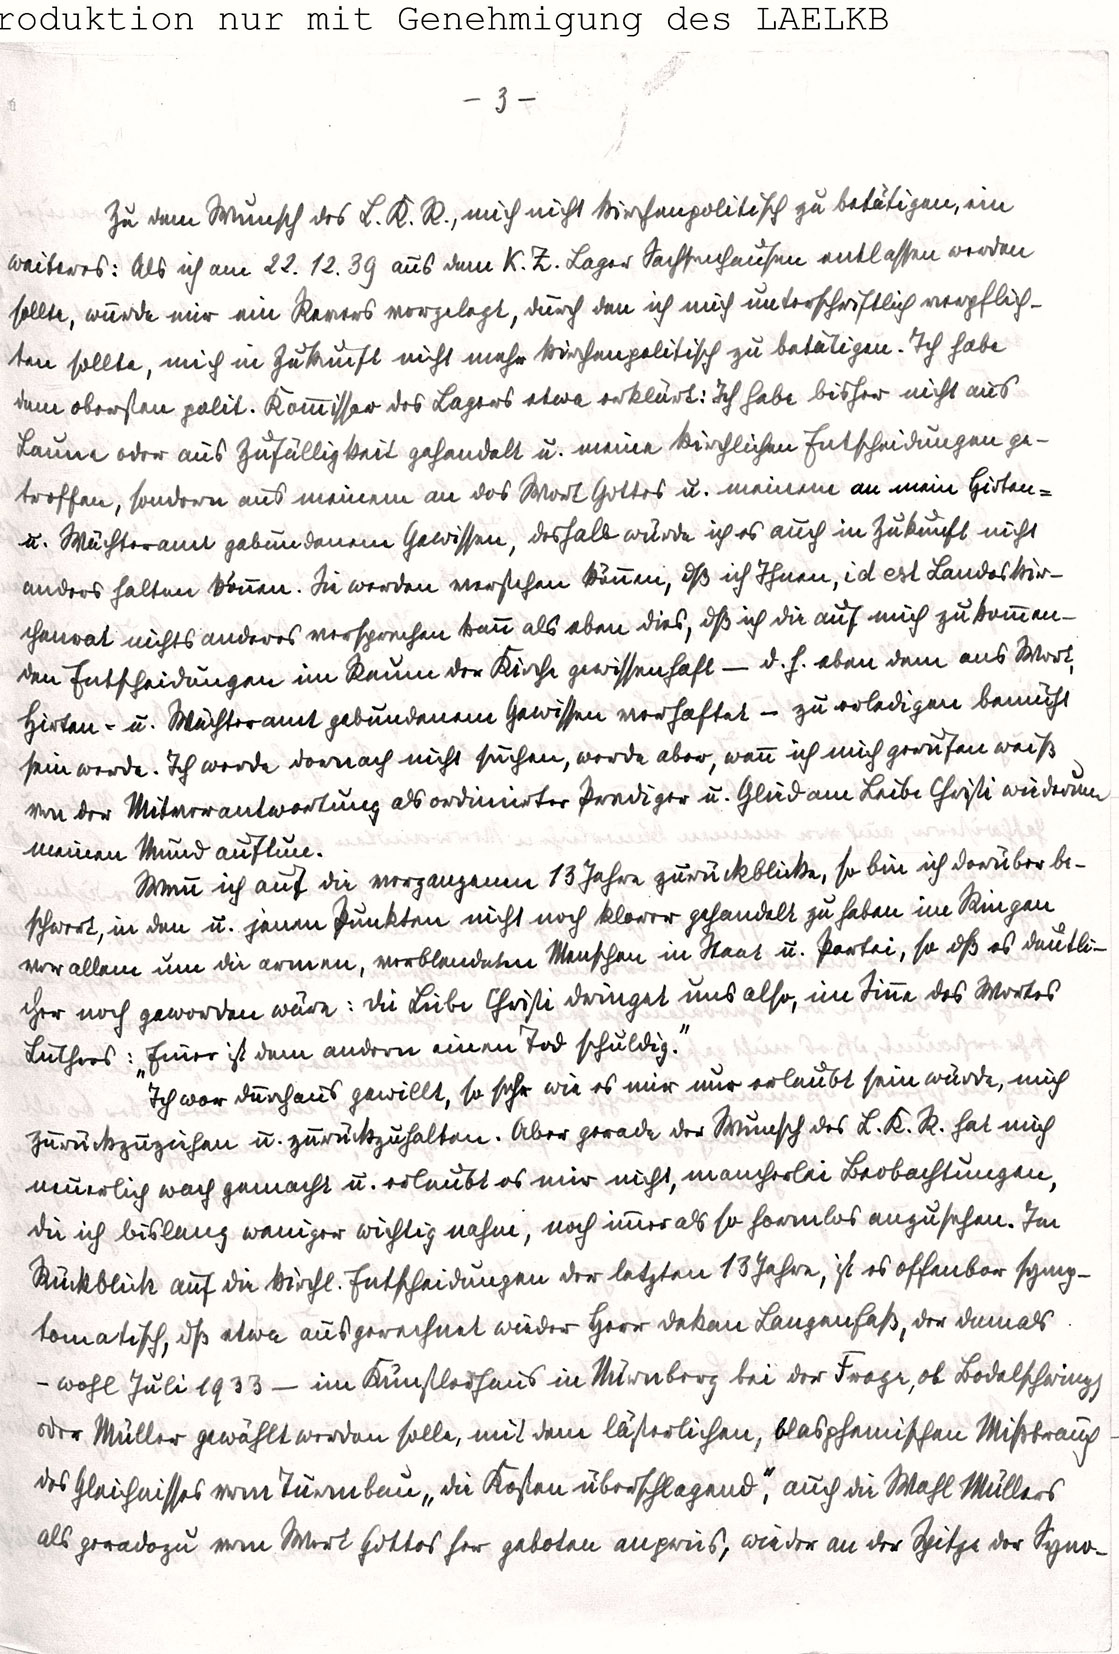 roduktion nur mit Genehmigung des LAELKB
- 3 -
Zu dem Wunsch des L. K. R., mich nicht kirchenpolitisch zu betätigen, ein
weiteres: Als ich am 22. 12. 39 aus dem K. Z. Lager Sachsenhausen entlassen werden
sollte, wurde mir ein Revers vorgelegt, durch den ich mich unterschriftlich verpflich-
ten sollte, mich in Zukunft nicht mehr kirchenpolitisch zu betätigen. Ich habe
dem obersten polit. Kommissar des Lagers etwa erklärt: Ich habe bisher nicht aus
Laune oder aus Zufälligkeit gehandelt u. meine kirchlichen Entscheidungen ge-
troffen, sondern aus meinem an das Wort Gottes u. meinem an mein Hirten=
u. Wächteramt gebundenem Gewissen, deshalb würde ich es auch in Zukunft nicht
anders halten können. Sie werden verstehen können, dß ich Ihnen, id est Landeskir-
chenrat nichts anderes versprechen kann als eben dies, dß ich die auf mich zukommen-
den Entscheidungen im Raum der Kirche gewissenhaft – d. h. eben dem ans Wort,
Hirten- u. Wächteramt gebundenem Gewissen verhaftet – zu erledigen bemüht
sein werde. Ich werde darnach nicht suchen, werde aber, wenn ich mich gerufen weiß
von der Mitverantwortung als ordinierter Prediger u. Glied am Leibe Christi wiederum
meinen Mund auftun.
Wenn ich auf die vergangenen 13 Jahre zurückblicke, so bin ich darüber be-
schwert, in den u. jenen Punkten nicht noch klarer gehandelt zu haben im Ringen
vor allem um die armen, verblendeten Menschen in Staat u. Partei, so dß es deutli-
cher noch geworden wäre: die Liebe Christi dringet uns also, im Sinne des Wortes
Luthers: „Einer ist dem andern einen Tod schuldig."
"Ich war durchaus gewillt, so sehr wie es mir nur erlaubt sein würde, mich
zurückzuziehen u. zurückzuhalten. Aber gerade der Wunsch des L. K. R. hat mich
neuerlich wach gemacht u. erlaubt es mir nicht, mancherlei Beobachtungen,
die ich bislang weniger wichtig nahm, noch immer als so harmlos anzusehen. Im
Rückblick auf die kirchl. Entscheidungen der letzten 13 Jahre, ist es offenbar symp-
tomatisch, dß etwa ausgerechnet wieder Herr Dekan Langenfaß, der damals
- wohl Juli 1933 – im Künstlerhaus in Nürnberg bei der Frage, ob Bodelschwingh
oder Müller gewählt werden solle, mit dem lästerlichen, blasphemischen Mißbrauch
des Gleichnisses vom Turmbau „die Kosten überschlagend", auch die Wahl Müllers
als geradezu vom Wort Gottes her geboten anpries, wieder an der Spitze der Syno-